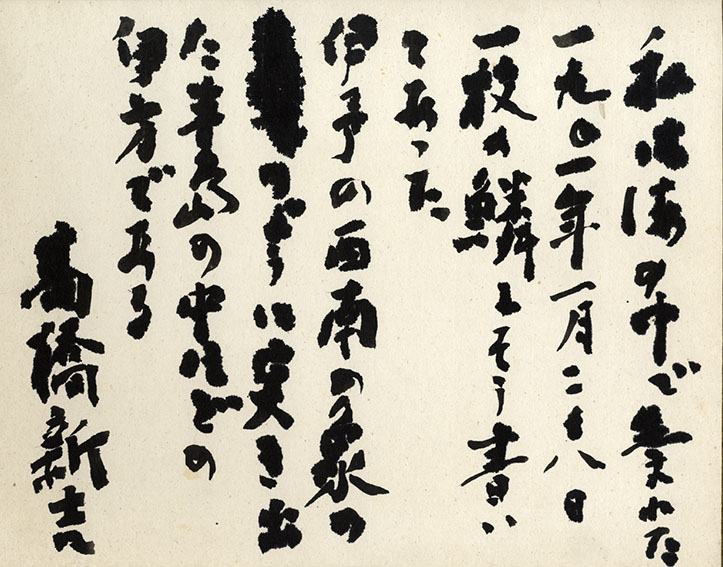 私は海の中で生れた
一九〇一年一月二十八日
一枚の鱗にそう書い
てあった
伊予の西南の象の
のように突き出
た半島の中ほどの
伊方である
高橋新吉